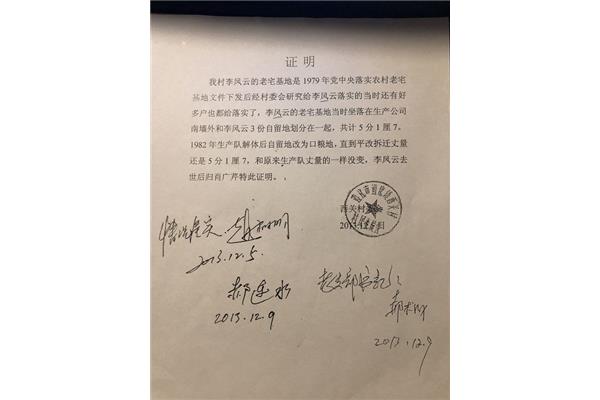 证明
我村李风云的老宅基地是1979年党中央落实农村老宅
基地文件下发后经村委会研究给李风云落实的当时还有好
多户也都给落实了，李风云的老宅基地当时坐落在生产公司
南墙外和李风云3份自留地划分在一起，共计5分1厘7，
1982年生产队解体后自留地改为口粮地，直到平改拆迁丈量
还是5分1厘7，和原来生产队丈量的一样没变，李风云去
世后归肖广芹特此证明。
西关村
2013.12.日
情况属实
2013.12.5.
郝连水
2013.12.9
老支部书记
2013.12.9